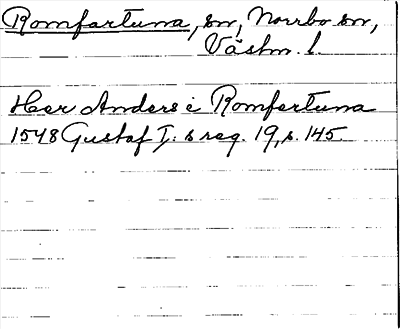 Romfartuna, sn, Norrbo sn,
Västm. l.
Her Anders i Romfertuna
1548 Gustaf I:s reg. 19, s. 145.